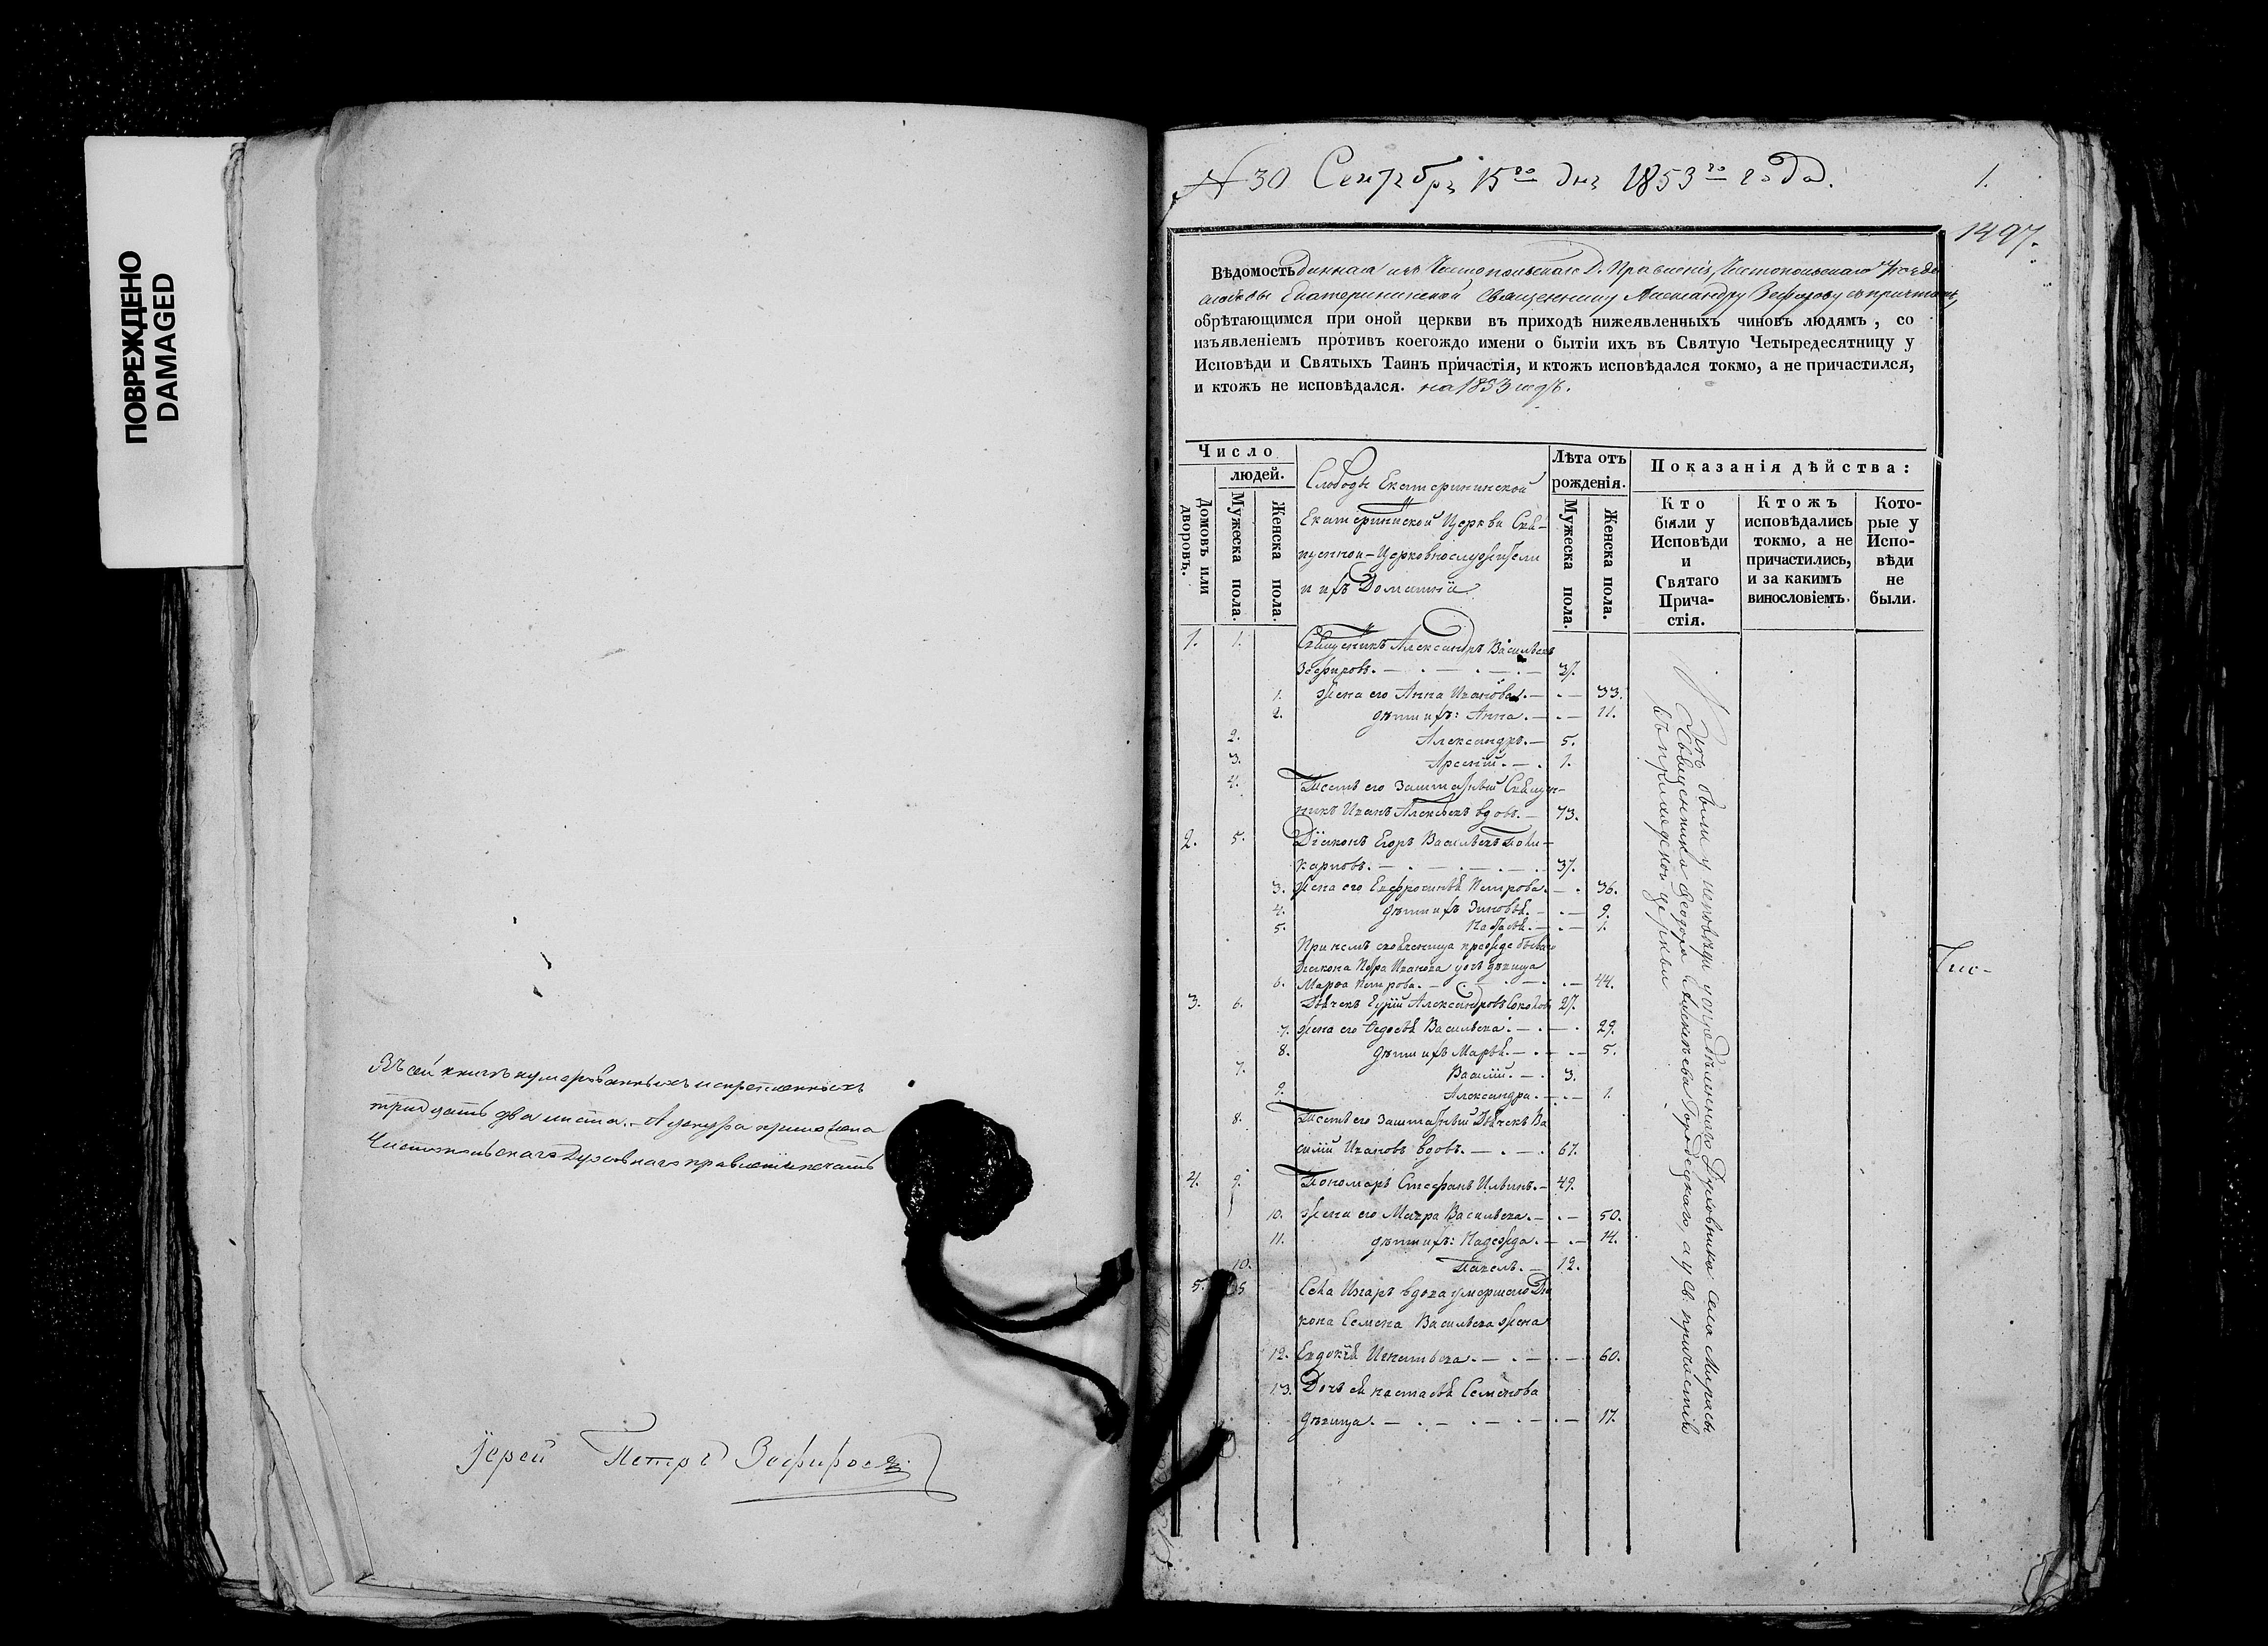 ПОВРЕЖДЕНО
DAMAGED
Въ сей книгѣ нумерованныхъ и скрепленныхъ
тридцать два листа. А у шнура приложена
Чистопольскаго Духовнаго правленія печать
Іерей Петръ Зефировъ.
N 30 Сентября 15го дня 1853го года.
1.
1497.
Вѣдомость данная изъ Чистопольскаго Д. Правленія, Чистопольскаго уѣзда
слободы Екатерининской Священнику Александру Зефирову съ причтомъ,
обрѣтающимся при оной церкви въ приходѣ нижеявленныхъ чиновъ людямъ, со
изъявленіемъ противъ коегождо имени о бытіи ихъ въ Святую Четыредесятницу у
Исповѣди и Святыхъ Таинъ причастія, и ктожъ исповѣдался токмо, а не причастился,
и ктожъ не исповѣдался. на 1853 годъ.
Число
людей.
Домовъ или дворовъ.
Мужеска пола.
Женска пола.
Слободы Екатерининской
Екатерининской Церкви
Церковнослужители
и ихъ Домашніи
Лѣта отъ
рожденія.
Мужеска пола.
Женска пола.
Показанія дѣйства:
Кто
были у
Исповѣди
и
Святаго
Прича-
стія.
Ктожъ
исповѣдались
токмо, а не
причастились,
и за какимъ
винословіемъ.
Кото-
рые у
Испо-
вѣди
не
были.
1. 1. Священникъ Александръ Васильевъ
Зефировъ. 37.
1. жена его Анна Иванова. 33.
2. дѣти ихъ: Анна. 11.
2. Александръ. 5.
3. Арсеній. 1.
4. Тесть его заштатный Священ-
никъ Иванъ Алексѣевъ вдовъ. 73.
2. 5. Діаконъ Егоръ Васильевъ Поли-
карповъ. 37.
3. жена его Евфросинья Петрова. 36.
4. дѣти ихъ Зиновья. 9.
5. 1.
При немъ своячница прежде бывшаго
Діакона Петра Иванова дочь дѣвица
6. Марѳа Петрова. 44.
3. 6. Дьячекъ Гурій Александровъ Соколовъ 27.
7. жена его Ѳедосья Васильева. 29.
8. дѣти ихъ Марья. 5.
7. Василій. 3.
9. Александра. 1.
8. Тесть его заштатный Дьячекъ Ва-
силій Ивановъ вдовъ. 67.
4. 9. Пономарь Стефанъ Ильинъ. 49.
10. жена его Мавра Васильева. 50.
11. дѣти ихъ: Надежда. 14.
10. Павелъ. 12.
5. Села Изгаръ вдова умершаго Діа-
кона Семена Васильева жена
12. Евдокія Игнатьева. 60.
13. Дочь ея Настасья Семенова
дѣвица. 17.
Всѣ были у исповѣди у опредѣленнаго Духовника села Мурасы
Священника Ѳеодора Алексѣева Городецкаго, а у св. причастія
въ приходской церкви
Чис-